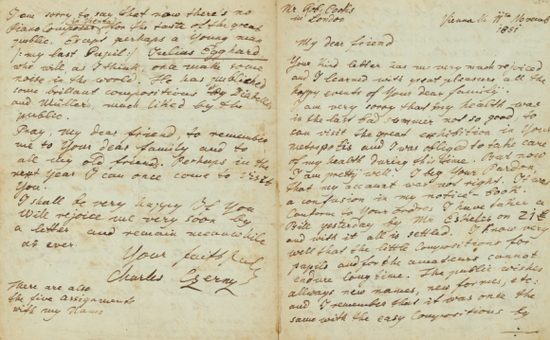 Mr Rob. Cocks
in London
Vienna
1851
My dear friend
Your kind letter has me very much rejoiced
and I learned with great pleasure all the
happy events of Your dear family.
I am very sorry that my health was
in the last bad summer not so good, to
can visit the great exhibition in Your
metropolis and I was obliged to take care
of my health during this time. But now
I am pretty well. I beg Your Pardon
that my account was not right.
a confusion in my notice book.
Conform to Your order I have taken a
yesterday Mr on 21£
and with it all is settled. I know very
well that the little Compositions for
pupils and for the amateurs cannot
endure long time. The public wishes
allways new names, new formes, etc:
and I remember that it was once the
same with the easy Compositions by
I am sorry to say that now there's no
Piano Composer, for the taste of the great
public. Except perhaps a Young man
(: my last Pupil :) Julius Egghard
who will, as I think, once make some
noise in the world. He has published
some brillant compositions by Diabelli
and Müller, much liked by the
public.
Pray, my dear friend, to remember
me to Your dear family and to
all my old friend. Perhaps in the
next year I can once come to visit
You.
I shall be very happy if You
Will rejoice me very soon by
a letter and remain
as ever
Your faithful
Charles Czerny
There are also
the five assignments
with my Name